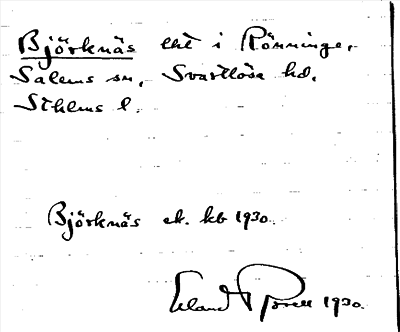 Björknäs lht i Rönninge,
Salems sn, Svartlösa hd,
Sthlms l.
Björknäs ek. kb 1930.
Erland Rosell 1930.